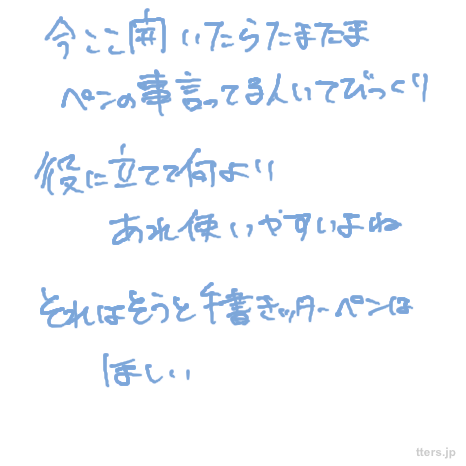 今ここ開いたらたまたま
ペンの事言ってる人いてびっくり
役に立てて何より
あれ使いやすいよね
それはそうと手書きッターペンは
ほしい
tters.jp